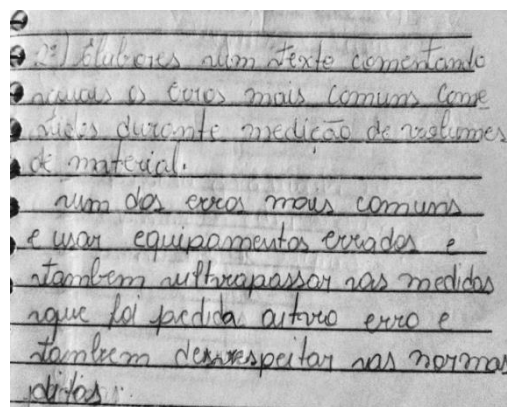 2º) Elabores um texte comentando
quais os erros mais comuns come
tidos durante medição de volumes
de material.
um dos erros mais comuns
e usar equipamentos errados e
tambem ultrapassar as medidas
que foi pedida outro erro e
tambem desrespeitar as normas
ditas.